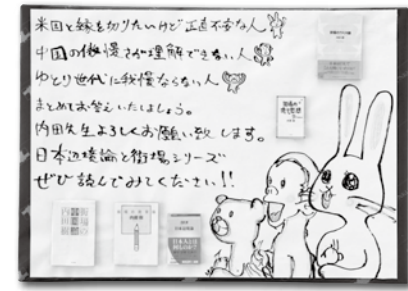 米国と縁を切りたいけど正直不安な人
中国の傲慢さが理解できない人
ゆとり世代に我慢ならない人
まとめてお答えいたしましょう。
内田先生よろしくお願い致します。
日本辺境論と街場シリーズ
ぜひ読んでみてください!!